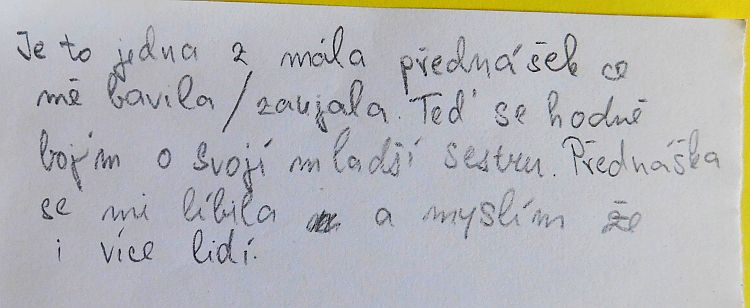 Je to jedna z mála přednášek co
mě bavila/zaujala. Teď se hodně
bojím o svojí mladší sestru. Přednáška
se mi líbila a myslím že
i více lidí.